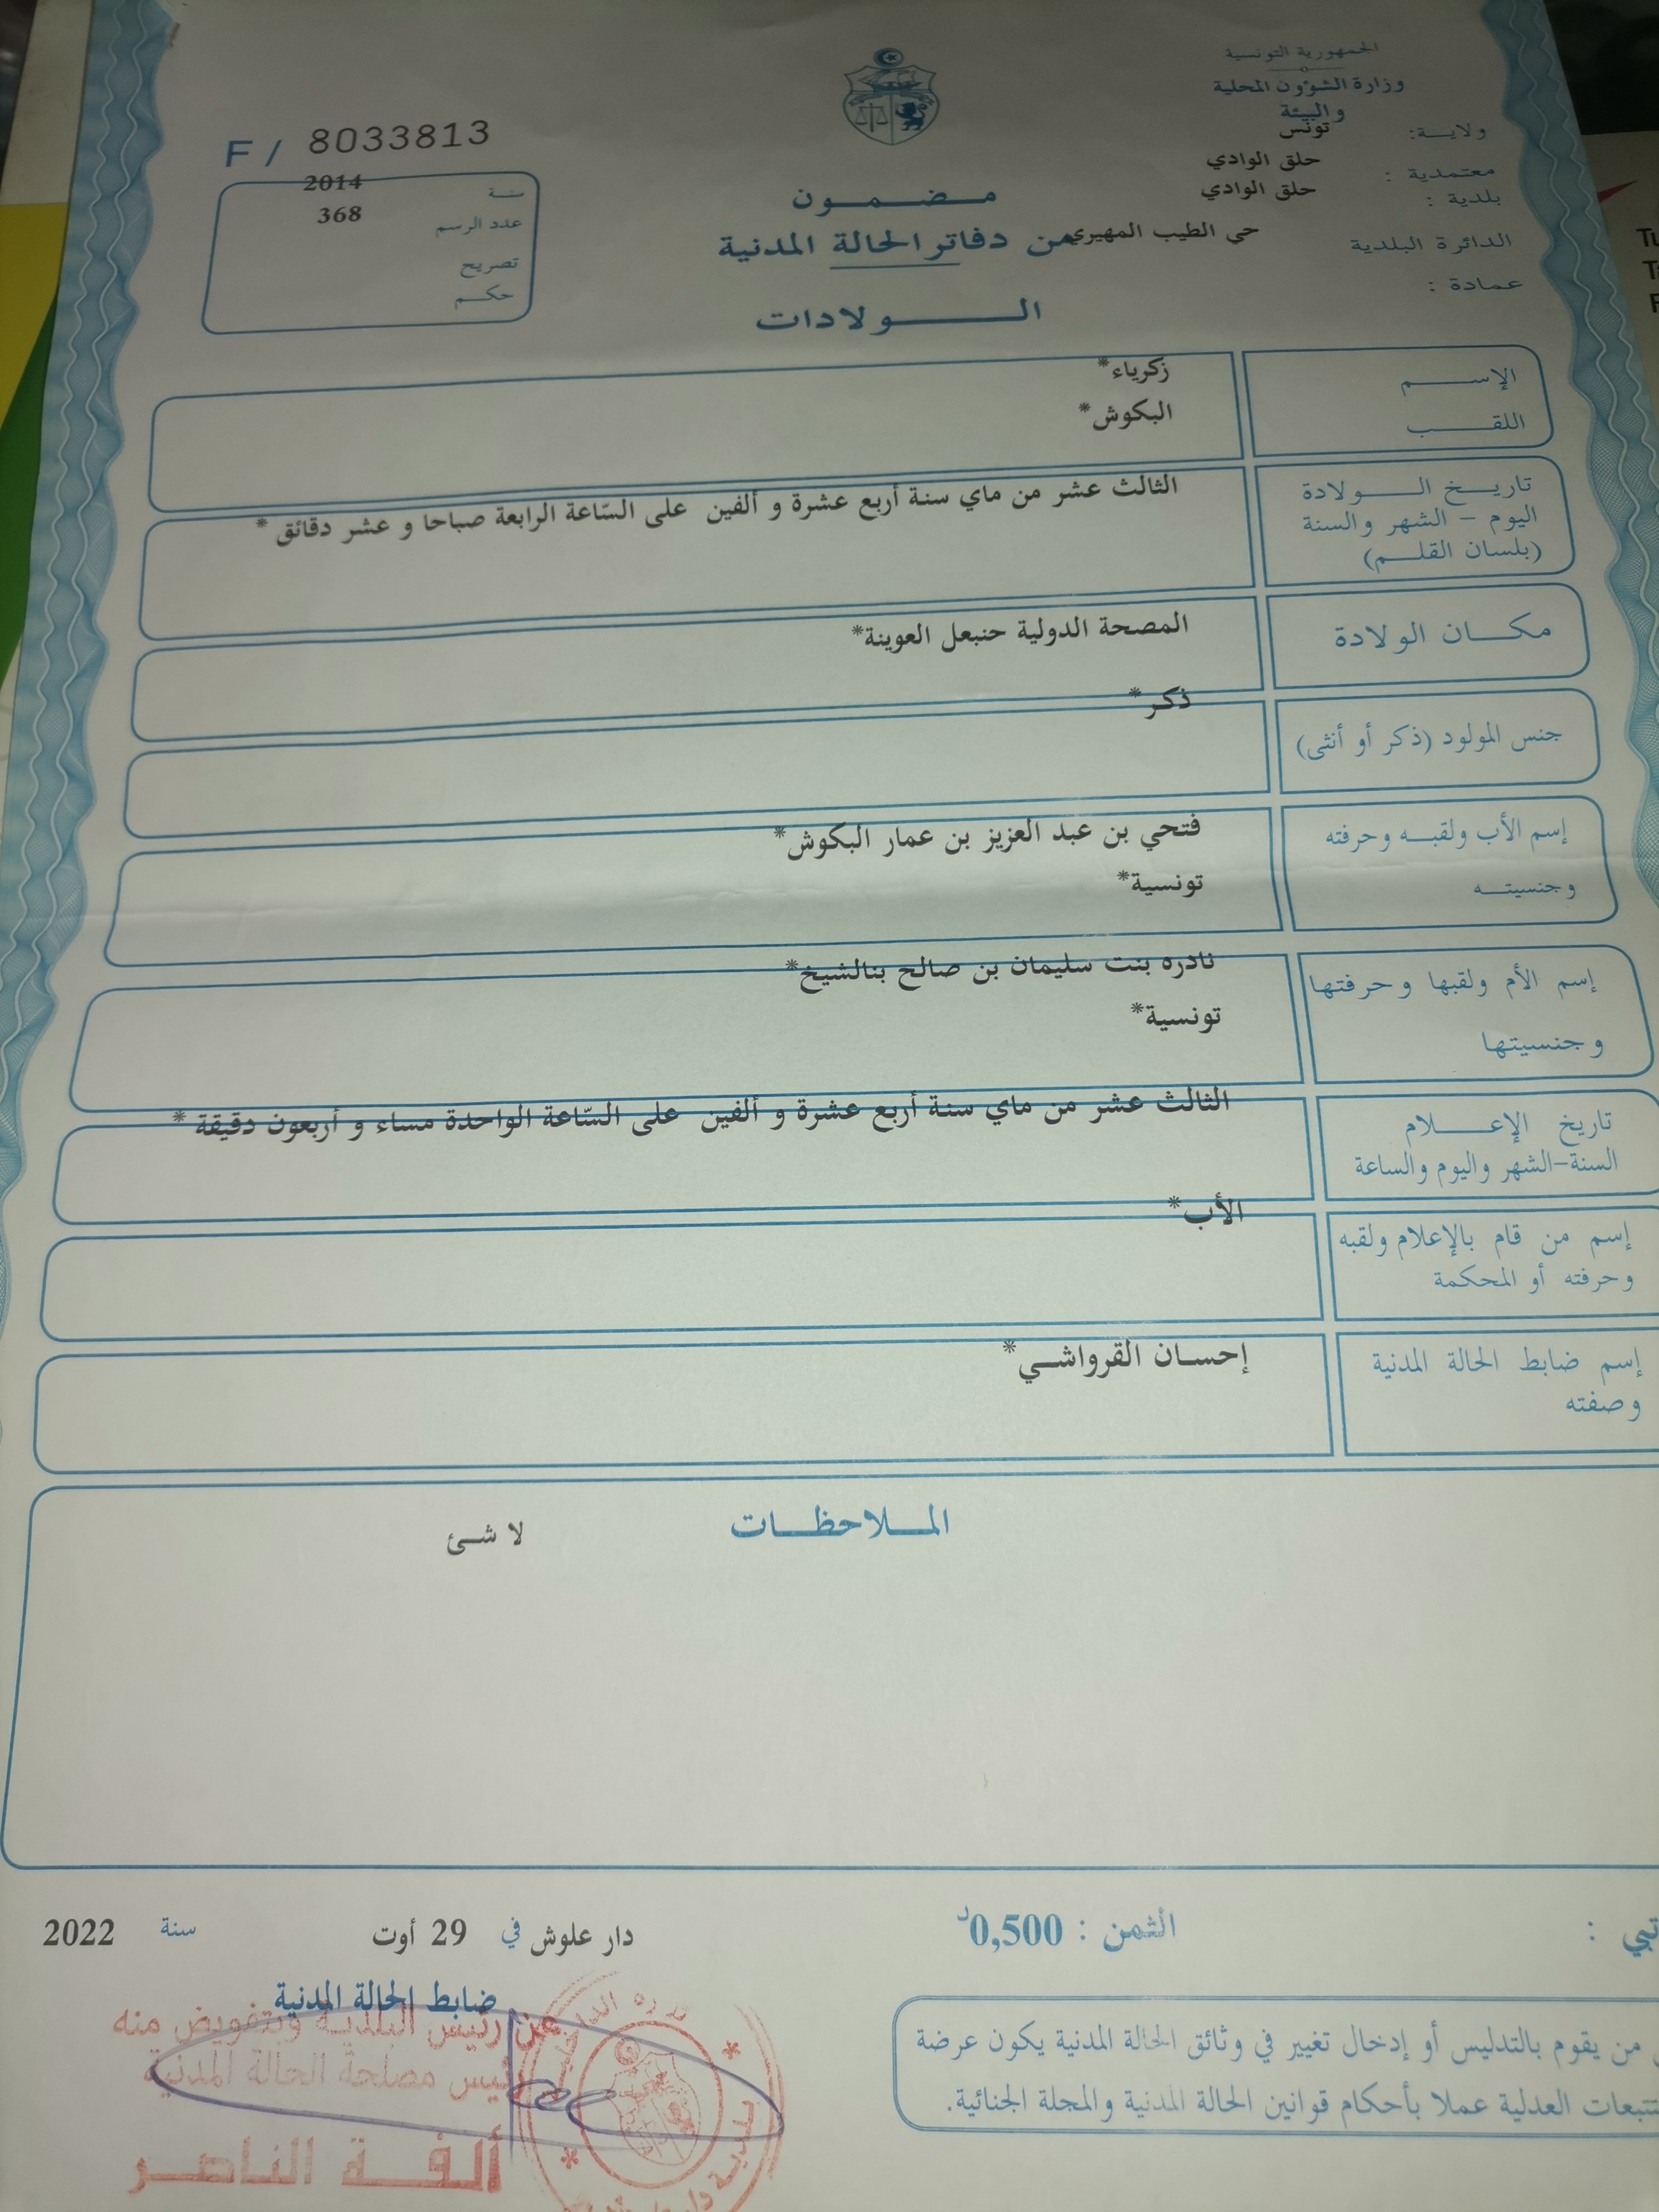 الجمهورية التونسية
وزارة الشؤون المحلية
والبيئة
ولاية: تونس
معتمدية : حلق الوادي
بلدية : حلق الوادي
الدائرة البلدية حي الطيب المهيري
عمادة :
F / 8033813
سنة 2014
عدد الرسم 368
تصريح
حكم
مضمون
من دفاتر الحالة المدنية
الولادات
الإسم زكرياء*
اللقب البكوش*
تاريخ الولادة
اليوم - الشهر والسنة
(بلسان القلم)
الثالث عشر من ماي سنة أربع عشرة و ألفين على السّاعة الرابعة صباحا و عشر دقائق *
مكان الولادة المصحة الدولية حنبعل العوينة*
جنس المولود (ذكر أو أنثى) ذكر*
إسم الأب ولقبه وحرفته فتحي بن عبد العزيز بن عمار البكوش*
وجنسيته تونسية*
إسم الأم ولقبها وحرفتها نادره بنت سليمان بن صالح بنالشيخ*
وجنسيتها تونسية*
تاريخ الإعلام
السنة-الشهر واليوم والساعة
الثالث عشر من ماي سنة أربع عشرة و ألفين على السّاعة الواحدة مساء و أربعون دقيقة *
إسم من قام بالإعلام ولقبه
وحرفته أو المحكمة
الأب*
إسم ضابط الحالة المدنية
وصفته
إحسان القرواشي*
الملاحظات
لا شئ
الثمن : 0,500د
دار علوش في 29 أوت سنة 2022
ضابط الحالة المدنية
عن رئيس البلدية وبتفويض منه
رئيس مصلحة الحالة المدنية
ألفة الناصر
من يقوم بالتدليس أو إدخال تغيير في وثائق الحالة المدنية يكون عرضة
للتتبعات العدلية عملا بأحكام قوانين الحالة المدنية والمجلة الجنائية.